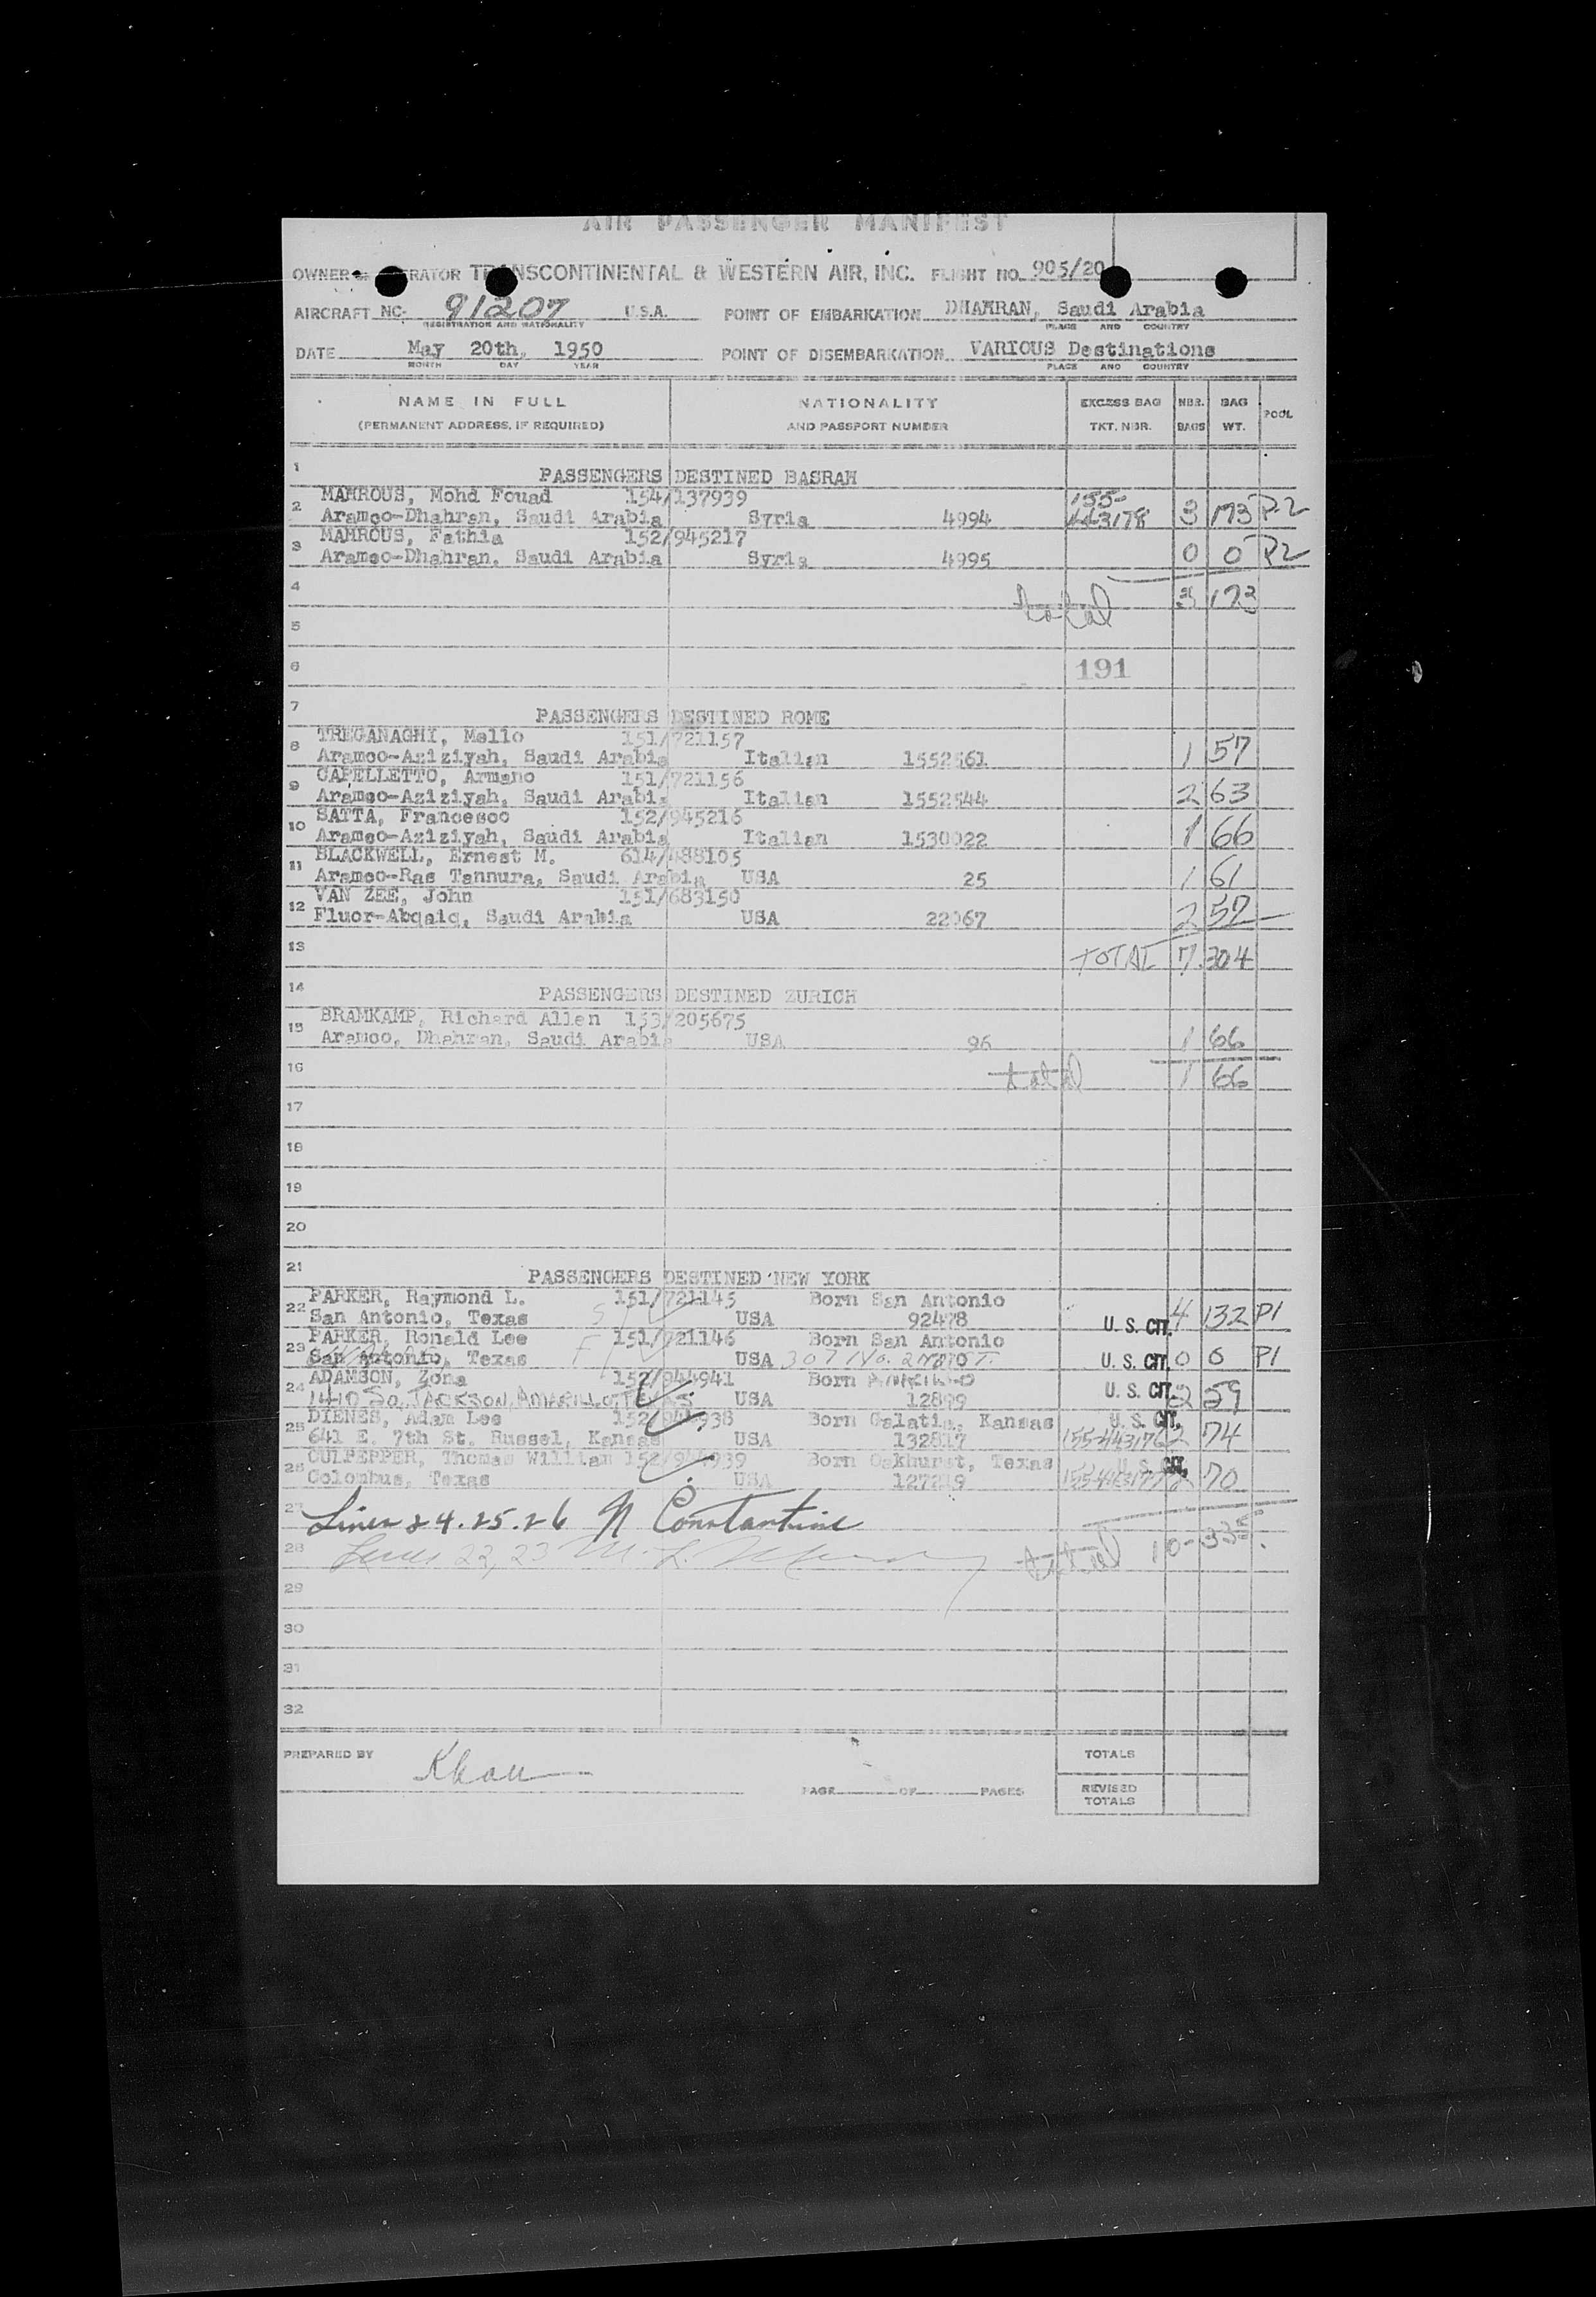 AIR PASSENGER MANIFEST
OWNER RATOR TRANSCONTINENTAL & WESTERN AIR, INC. FLIGHT NO. 905/20
AIRCRAFT NC- 91207 U.S.A. POINT OF EMBARKATION DHAHRAN, Saudi Arabia
REGISTRATION AND NATIONALITY PLACE AND COUNTRY
DATE May 20th, 1950 POINT OF DISEMBARKATION VARIOUS Destinations
MONTH DAY YEAR PLACE AND COUNTRY
NAME IN FULL NATIONALITY EXCESS BAG NBR. BAG POOL
(PERMANENT ADDRESS, IF REQUIRED) AND PASSPORT NUMBER TKT. NBR. BAGS WT.
1 PASSENGERS DESTINED BASRAH
MAHROUS, Mohd Fouad 154/137939 155-
2 Aramco-Dhahran, Saudi Arabia Syria 4994 443178 3 173 P2
MAHROUS, Fathia 152/945217
3 Aramco-Dhahran, Saudi Arabia Syria 4995 0 0 P2
4 total 3 173
5
6 191
7 PASSENGERS DESTINED ROME
TREGANAGHI, Mello 151/721157
8 Aramco-Aziziyah, Saudi Arabia Italian 1552561 1 57
CAPELLETTO, Armano 151/721156
9 Aramco-Aziziyah, Saudi Arabia Italian 1552544 2 63
SATTA, Francesco 152/945216
10 Aramco-Aziziyah, Saudi Arabia Italian 1530022 1 66
BLACKWELL, Ernest M. 614/488105
11 Aramco-Ras Tannura, Saudi Arabia USA 25 1 61
VAN ZEE, John 151/683150
12 Fluor-Abqaiq, Saudi Arabia USA 22067 2 57
13 TOTAL 7 304
14 PASSENGERS DESTINED ZURICH
BRAMKAMP, Richard Allen 153/205675
15 Aramco, Dhahran, Saudi Arabia USA 96 1 66
16 total 1 66
17
18
19
20
21 PASSENGERS DESTINED NEW YORK
PARKER, Raymond L. 151/721145 Born San Antonio
22 San Antonio, Texas USA 92478 U. S. CIT. 4 132 P1
PARKER, Ronald Lee 151/721146 Born San Antonio
23 San Antonio, Texas USA 307 No. 2nd ST. U. S. CIT. 0 0 P1
ADAMSON, Zona 152/944941 Born AMARILLO
24 1410 So. JACKSON, AMARILLO, TEXAS USA 12899 U. S. CIT. 2 59
DIENES, Adam Lee 152/944938 Born Galatia, Kansas U. S. CIT.
25 641 E. 7th St. Russel, Kansas USA 132817 155-443176 2 74
CULPEPPER, Thomas William 152/944939 Born Oakhurst, Texas U. S. CIT.
26 Colombus, Texas USA 127219 155-443177 2 70
27 Lines 24.25.26 N Constantine
28 Lines 22, 23 M. L. total 10-335.
29
30
31
32
PREPARED BY Khan TOTALS
PAGE OF PAGES REVISED TOTALS